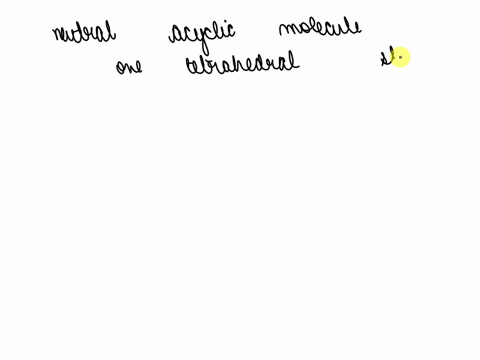 neutral acyclic molecule
one tetrahedral